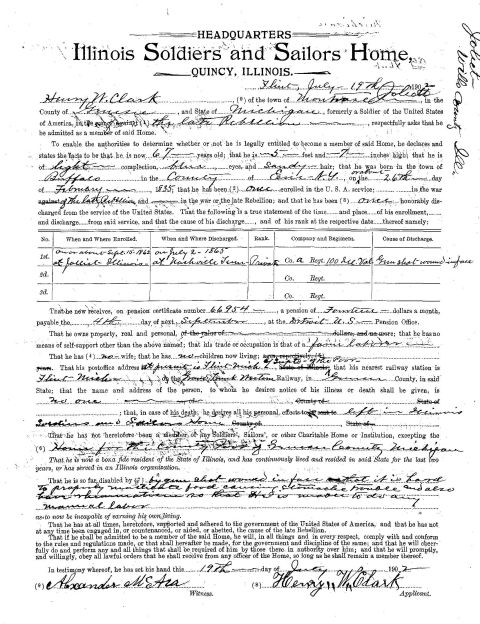 HEADQUARTERS
Illinois Soldiers and Sailors Home,
QUINCY, ILLINOIS.
Joliet
Wills County Ill.
Flint, July 19th 1902
Henry W. Clark (*) of the town of Montrose in the
County of Genesee and State of Michigan, formerly a Soldier of the United States
of America, the late Rebellion, respectfully asks that he
be admitted as a member of said Home.
To enable the authorities to determine whether or not he is legally entitled to become a member of said Home, he declares and
states the facts to be that he is, now, 67 years old; that he is 5 feet and 7 inches high; that he is
light completion, blue eyes, and Sandy hair; that he was born in the town of
Buffalo in the County of Erie N.Y., on the 26th day
of February 1835, that he has been (*) once enrolled in the U. S. A. service; in the war
against the late Rebellion, and in the war or the late Rebellion; and that he has been (*) once honorably dis-
charged from the service of the United States. That the following is a true statement of the time and place of his enrollment,
and discharge from said service, and that the cause of his discharge and of his rank at the respective dates thereof namely:
No. When and Where Enrolled. When and Where Discharged. Rank. Company and Regiment. Cause of Discharge.
1st. on or about Sept. 10-1862 at Joliet Illinois on July 2-1865 at Nashville Tenn Private Co. A Regt. 100 Ill. Vol. Gun shot wound in face
2d. Co. Regt.
3d. Co. Regt.
That he now receives, on pension certificate number 66954, a pension of Fourteen dollars a month,
payable the 4th day of next September, at the Detroit U.S. Pension Office.
That he owns property, real and personal, of the value of dollars, and no more; that he has no
means of self-support other than the above named; that his trade or occupation is that of a farm laborer
That he has (*) no wife; that he has no children now living;
That his postoffice address at present is Flint Mich that his nearest railway station is
Flint Mich, on the Grand Trunk Western Railway, in Genesee County, in said
State; that the name and address of the person, to whom he desires notice of his illness or death shall be given,
no one County of State of
; that, in case of his death, he desires all his personal effects left in Illinois
Soldiers and Sailors Home County of State of
That he has not heretofore been a member of any Soldiers', Sailors', or other Charitable Home or Institution, excepting the
(*) Home for the County Poor of Genesee County, Michigan
That he is now a bona fide resident of the State of Illinois, and has continuously lived and resided in said State for the last two
years, or has served in an Illinois organization.
That he is so far disabled by (*) by gun shot wound in face that it is hard
to properly masticate food or has stomach trouble and also
has rheumatism so that he is unable to do any
manual labor
as to now be incapable of earning his own living.
That he has at all times, heretofore, supported and adhered to the government of the United States of America, and that he has not
at any time been engaged in, or countenanced, or aided, or abetted, the cause of the late Rebellion.
That if he shall be admitted to be a member of the said Home, he will, in all things and in every respect, comply with and conform
to the rules and regulations made, or that shall hereafter be made, for the government and discipline of the same; and that he will cheer-
fully do and perform any and all things that shall be required of him by those there in authority over him; and that he will promptly,
and willingly, obey all lawful orders that he shall receive from any officer of the Home, so long as he shall remain a member thereof.
In testimony whereof, he has set his hand this 19th day of July 1902
(*) Alexander McAra (*) Henry W. Clark
Witness. Applicant.